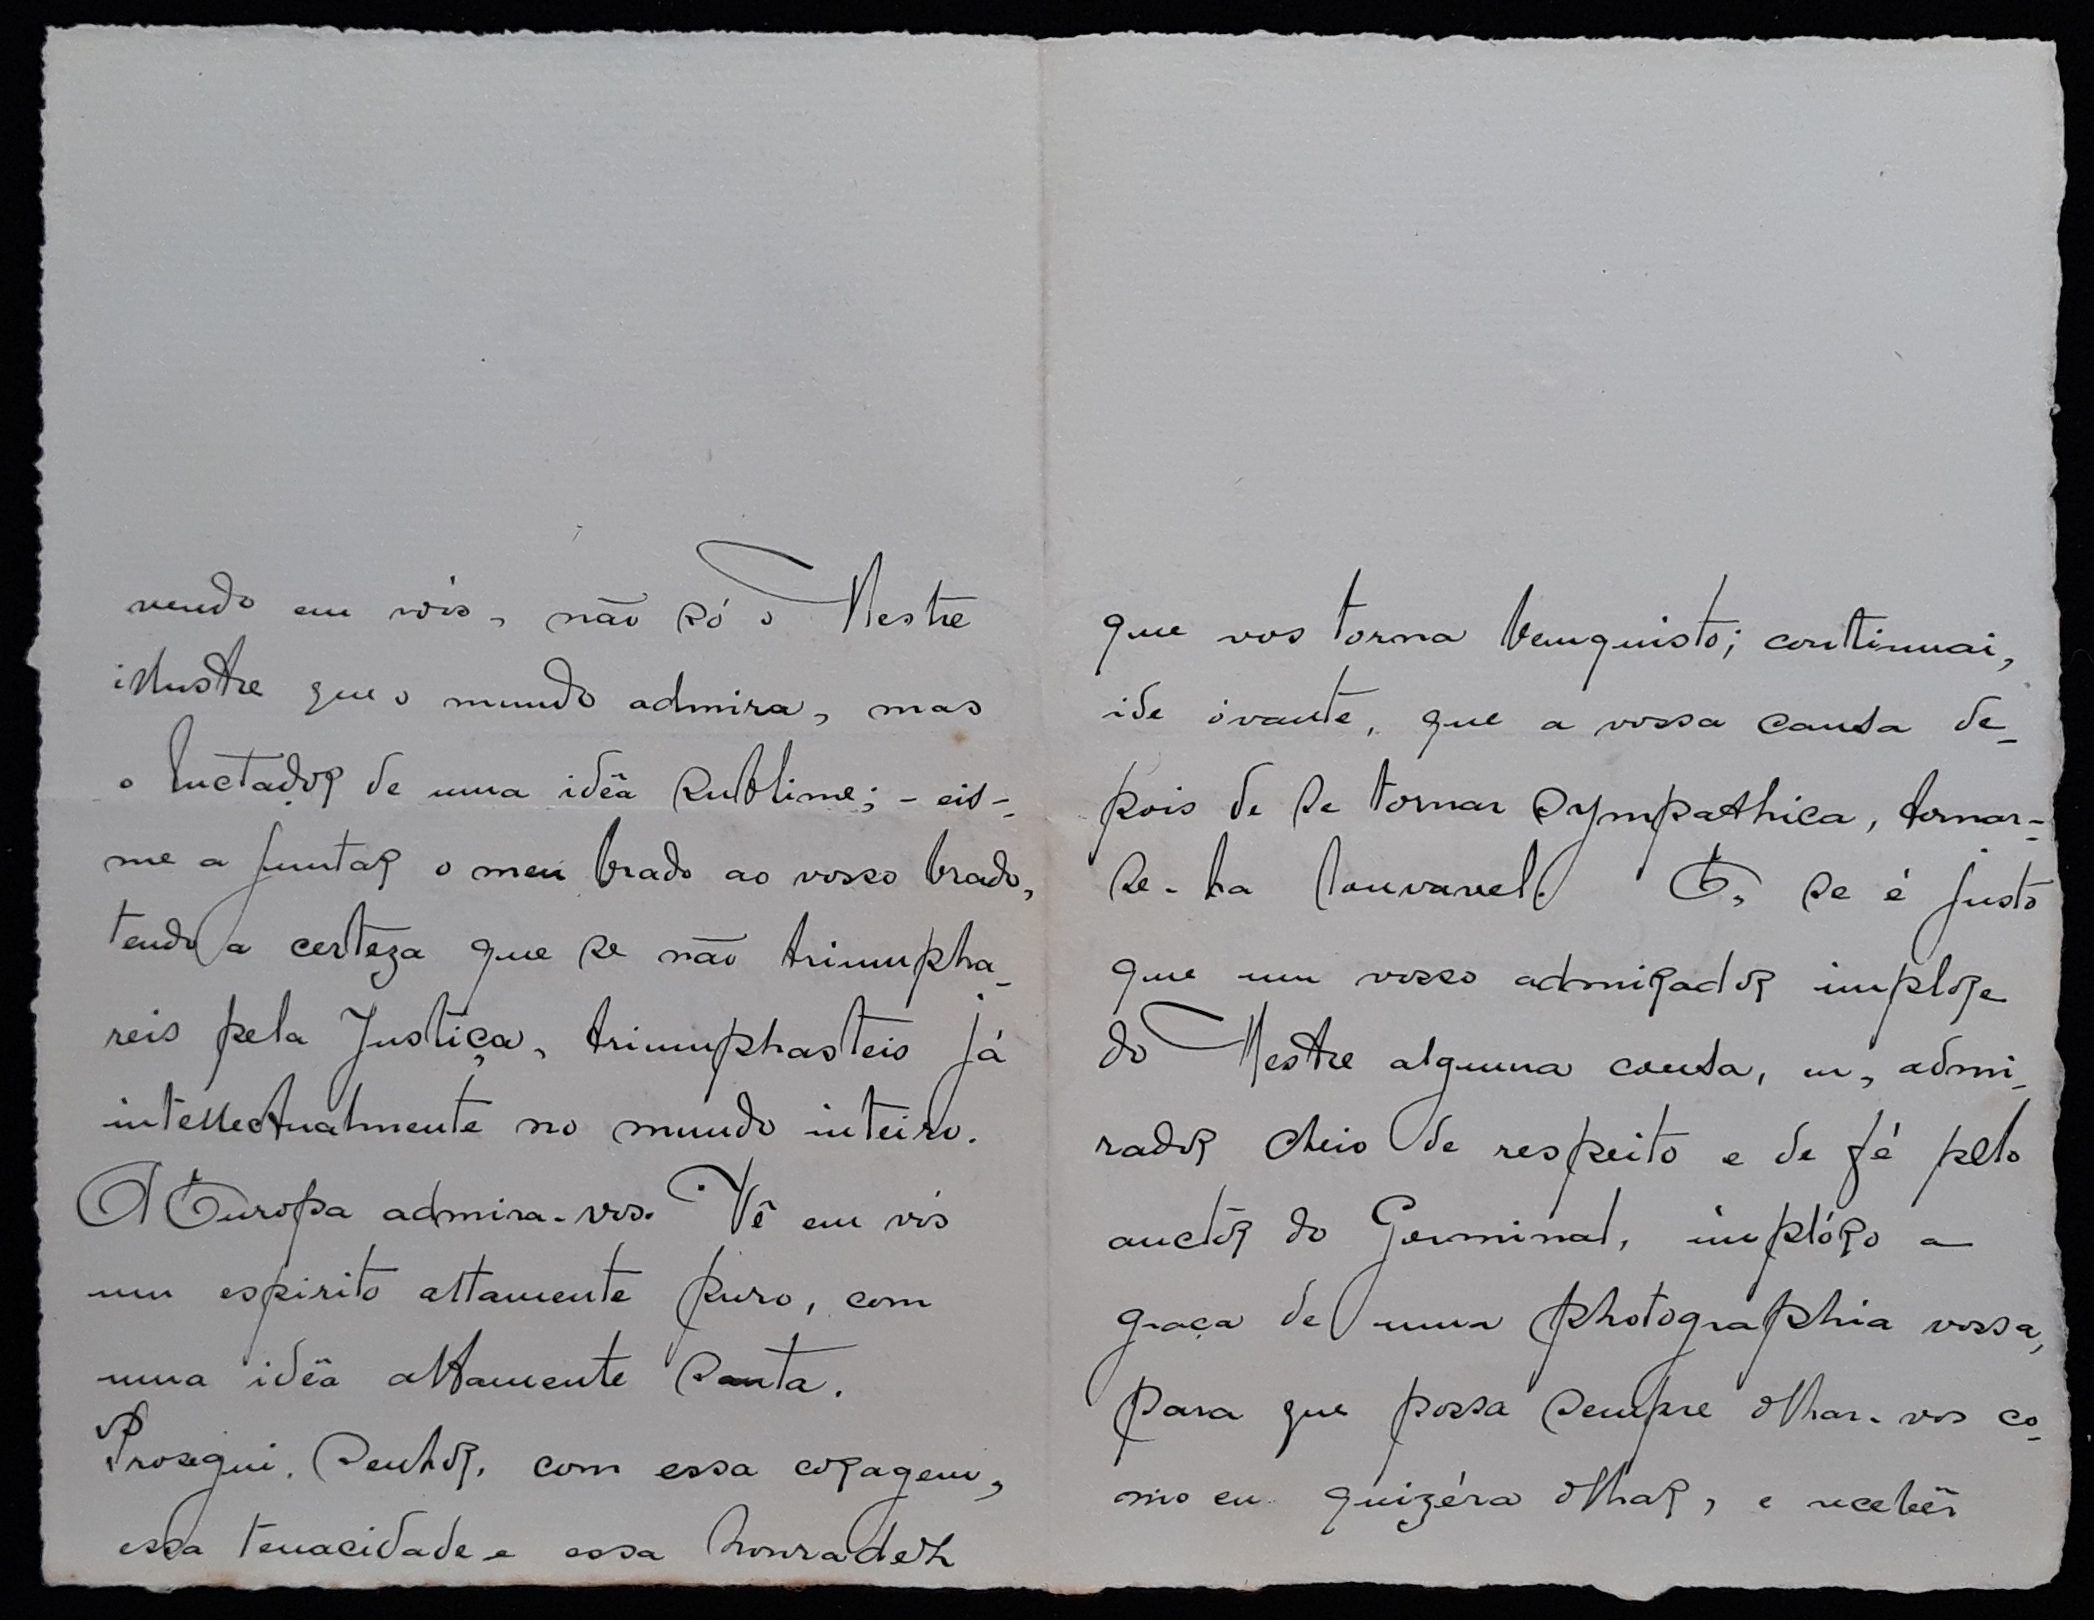 vendo em vós, não só o Mestre
illustre que o mundo admira, mas
o luctador de uma idêa sublime; - eis-
me a juntar o meu brado ao vosso brado,
tendo a certeza que se não triumpha-
reis pela Justiça, triumphasteis já
intellectualmente no mundo inteiro.
A Europa admira-vos. Vê em vós
um espirito altamente puro, com
uma idêa altamente santa.
Prosegui, Senhor, com essa coragem,
essa tenacidade e essa honradez
que vos torna bemquisto; continuai,
ide ovante, que a vossa causa de-
pois de se tornar sympathica, tornar-
se-ha louvavel. E, se é justo
que um vosso admirador implore
do Mestre alguma cousa, eu, admi-
rador cheio de respeito e de fé pelo
auctôr do Germinal, implóro a
graça de uma photographia vossa,
para que possa sempre olhar-vos co-
mo eu quizéra olhar, e recebêr